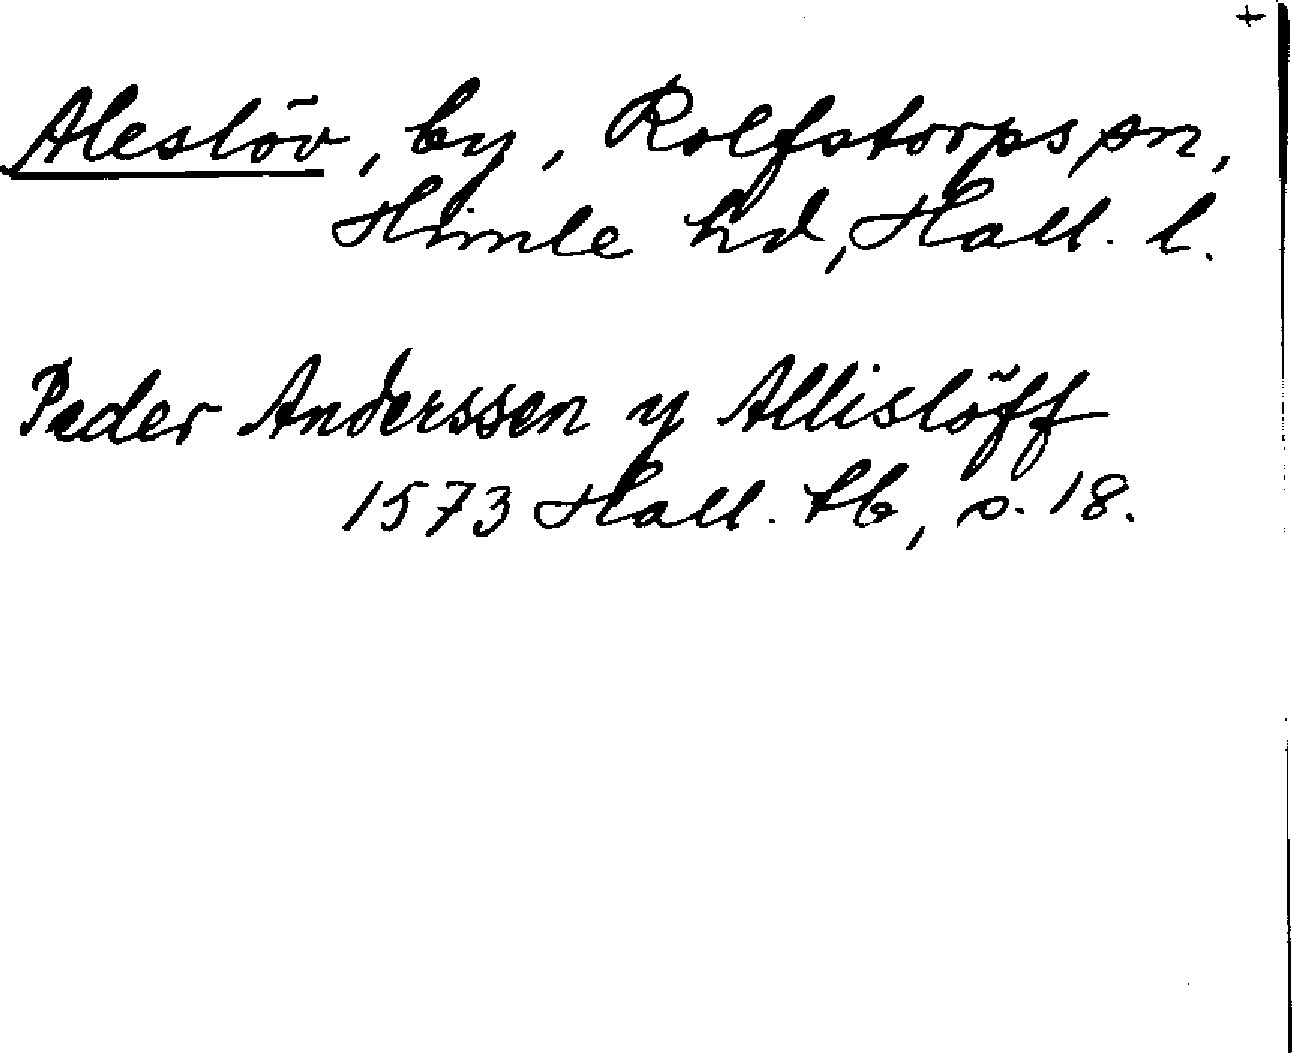 +
Aleslöv, by, Rolfstorps sn,
Himle hd, Hall. l.
Peder Anderssen y Allislöff
1573 Hall. tb, s. 18.